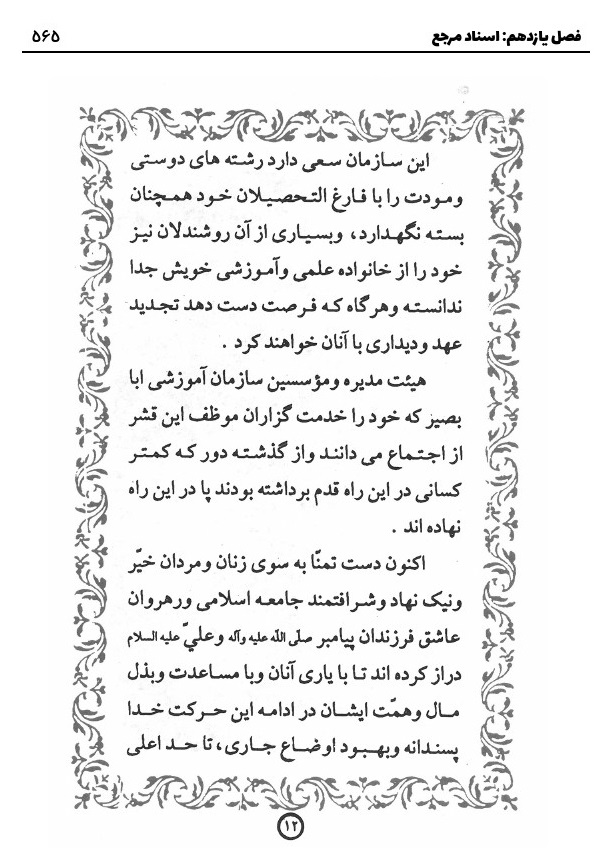 فصل یازدهم: اسناد مرجع ۵۶۵
این سازمان سعی دارد رشته های دوستی
ومودت را با فارغ التحصیلان خود همچنان
بسته نگهدارد، وبسیاری از آن روشندلان نیز
خود را از خانواده علمی وآموزشی خویش جدا
ندانسته وهرگاه که فرصت دست دهد تجدید
عهد ودیداری با آنان خواهند کرد .
هیئت مدیره ومؤسسین سازمان آموزشی ابا
بصیر که خود را خدمت گزاران موظف این قشر
از اجتماع می دانند واز گذشته دور که کمتر
کسانی در این راه قدم برداشته بودند پا در این راه
نهاده اند .
اکنون دست تمنّا به سوی زنان ومردان خیّر
ونیک نهاد وشرافتمند جامعه اسلامی ورهروان
عاشق فرزندان پیامبر صلی الله علیه وآله وعليّ علیه السلام
دراز کرده اند تا با یاری آنان وبا مساعدت وبذل
مال وهمّت ایشان در ادامه این حرکت خدا
پسندانه وبهبود اوضاع جاری، تا حد اعلی
۱۲